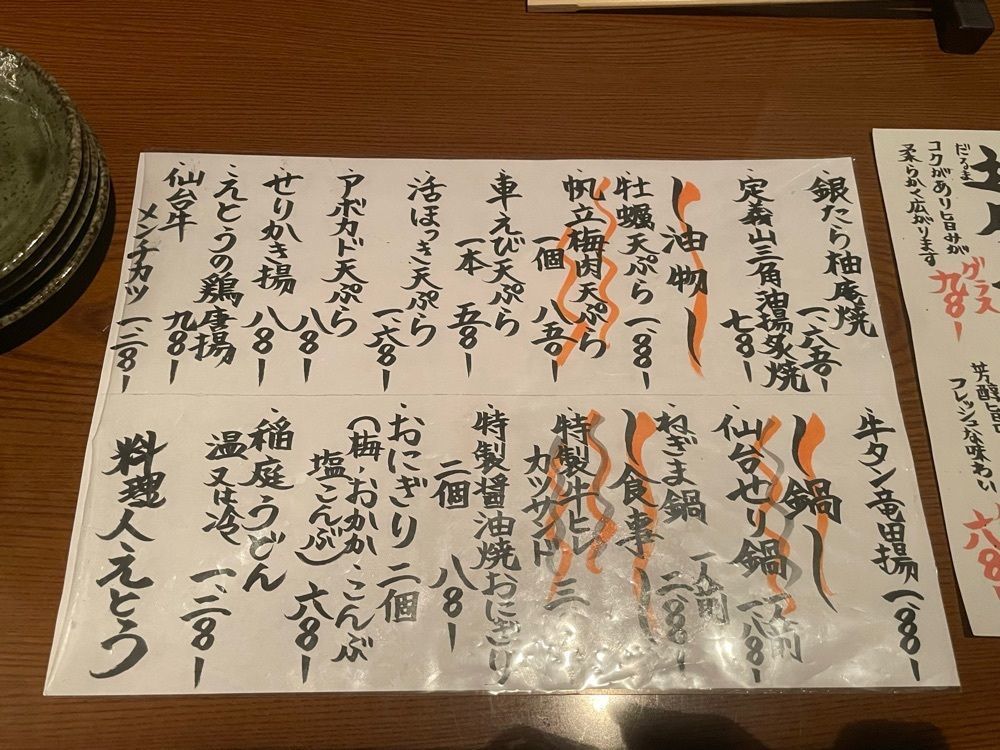 ・銀だら柚庵焼
一、六五〇ー
・定義山三角油揚炙焼
七八〇ー
ー油物ー
・牡蠣天ぷら
一、〇八〇ー
・帆立梅肉天ぷら
一個 八五〇ー
・車えび天ぷら
一本 五八〇ー
・活ほっき天ぷら
一、六八〇ー
・アボカド天ぷら
八八〇ー
・せりかき揚
八八〇ー
・えとうの鶏唐揚
九八〇ー
・仙台牛
メンチカツ 一、二八〇ー
・牛タン竜田揚
ー鍋ー
・仙台せり鍋
一人前
・ねぎま鍋
一人前
ー食事ー
・特製牛ヒレ
カツサンド
・特製醤油焼おにぎり
二個 八八〇ー
・おにぎり 二個
(梅・おかか・こんぶ
塩こんぶ)
六八〇ー
・稲庭うどん
温又は冷
料理人えとう
だるま
コクがあり旨サが
柔らかく広がります
グラス
九八〇ー
フレッシュな味わい